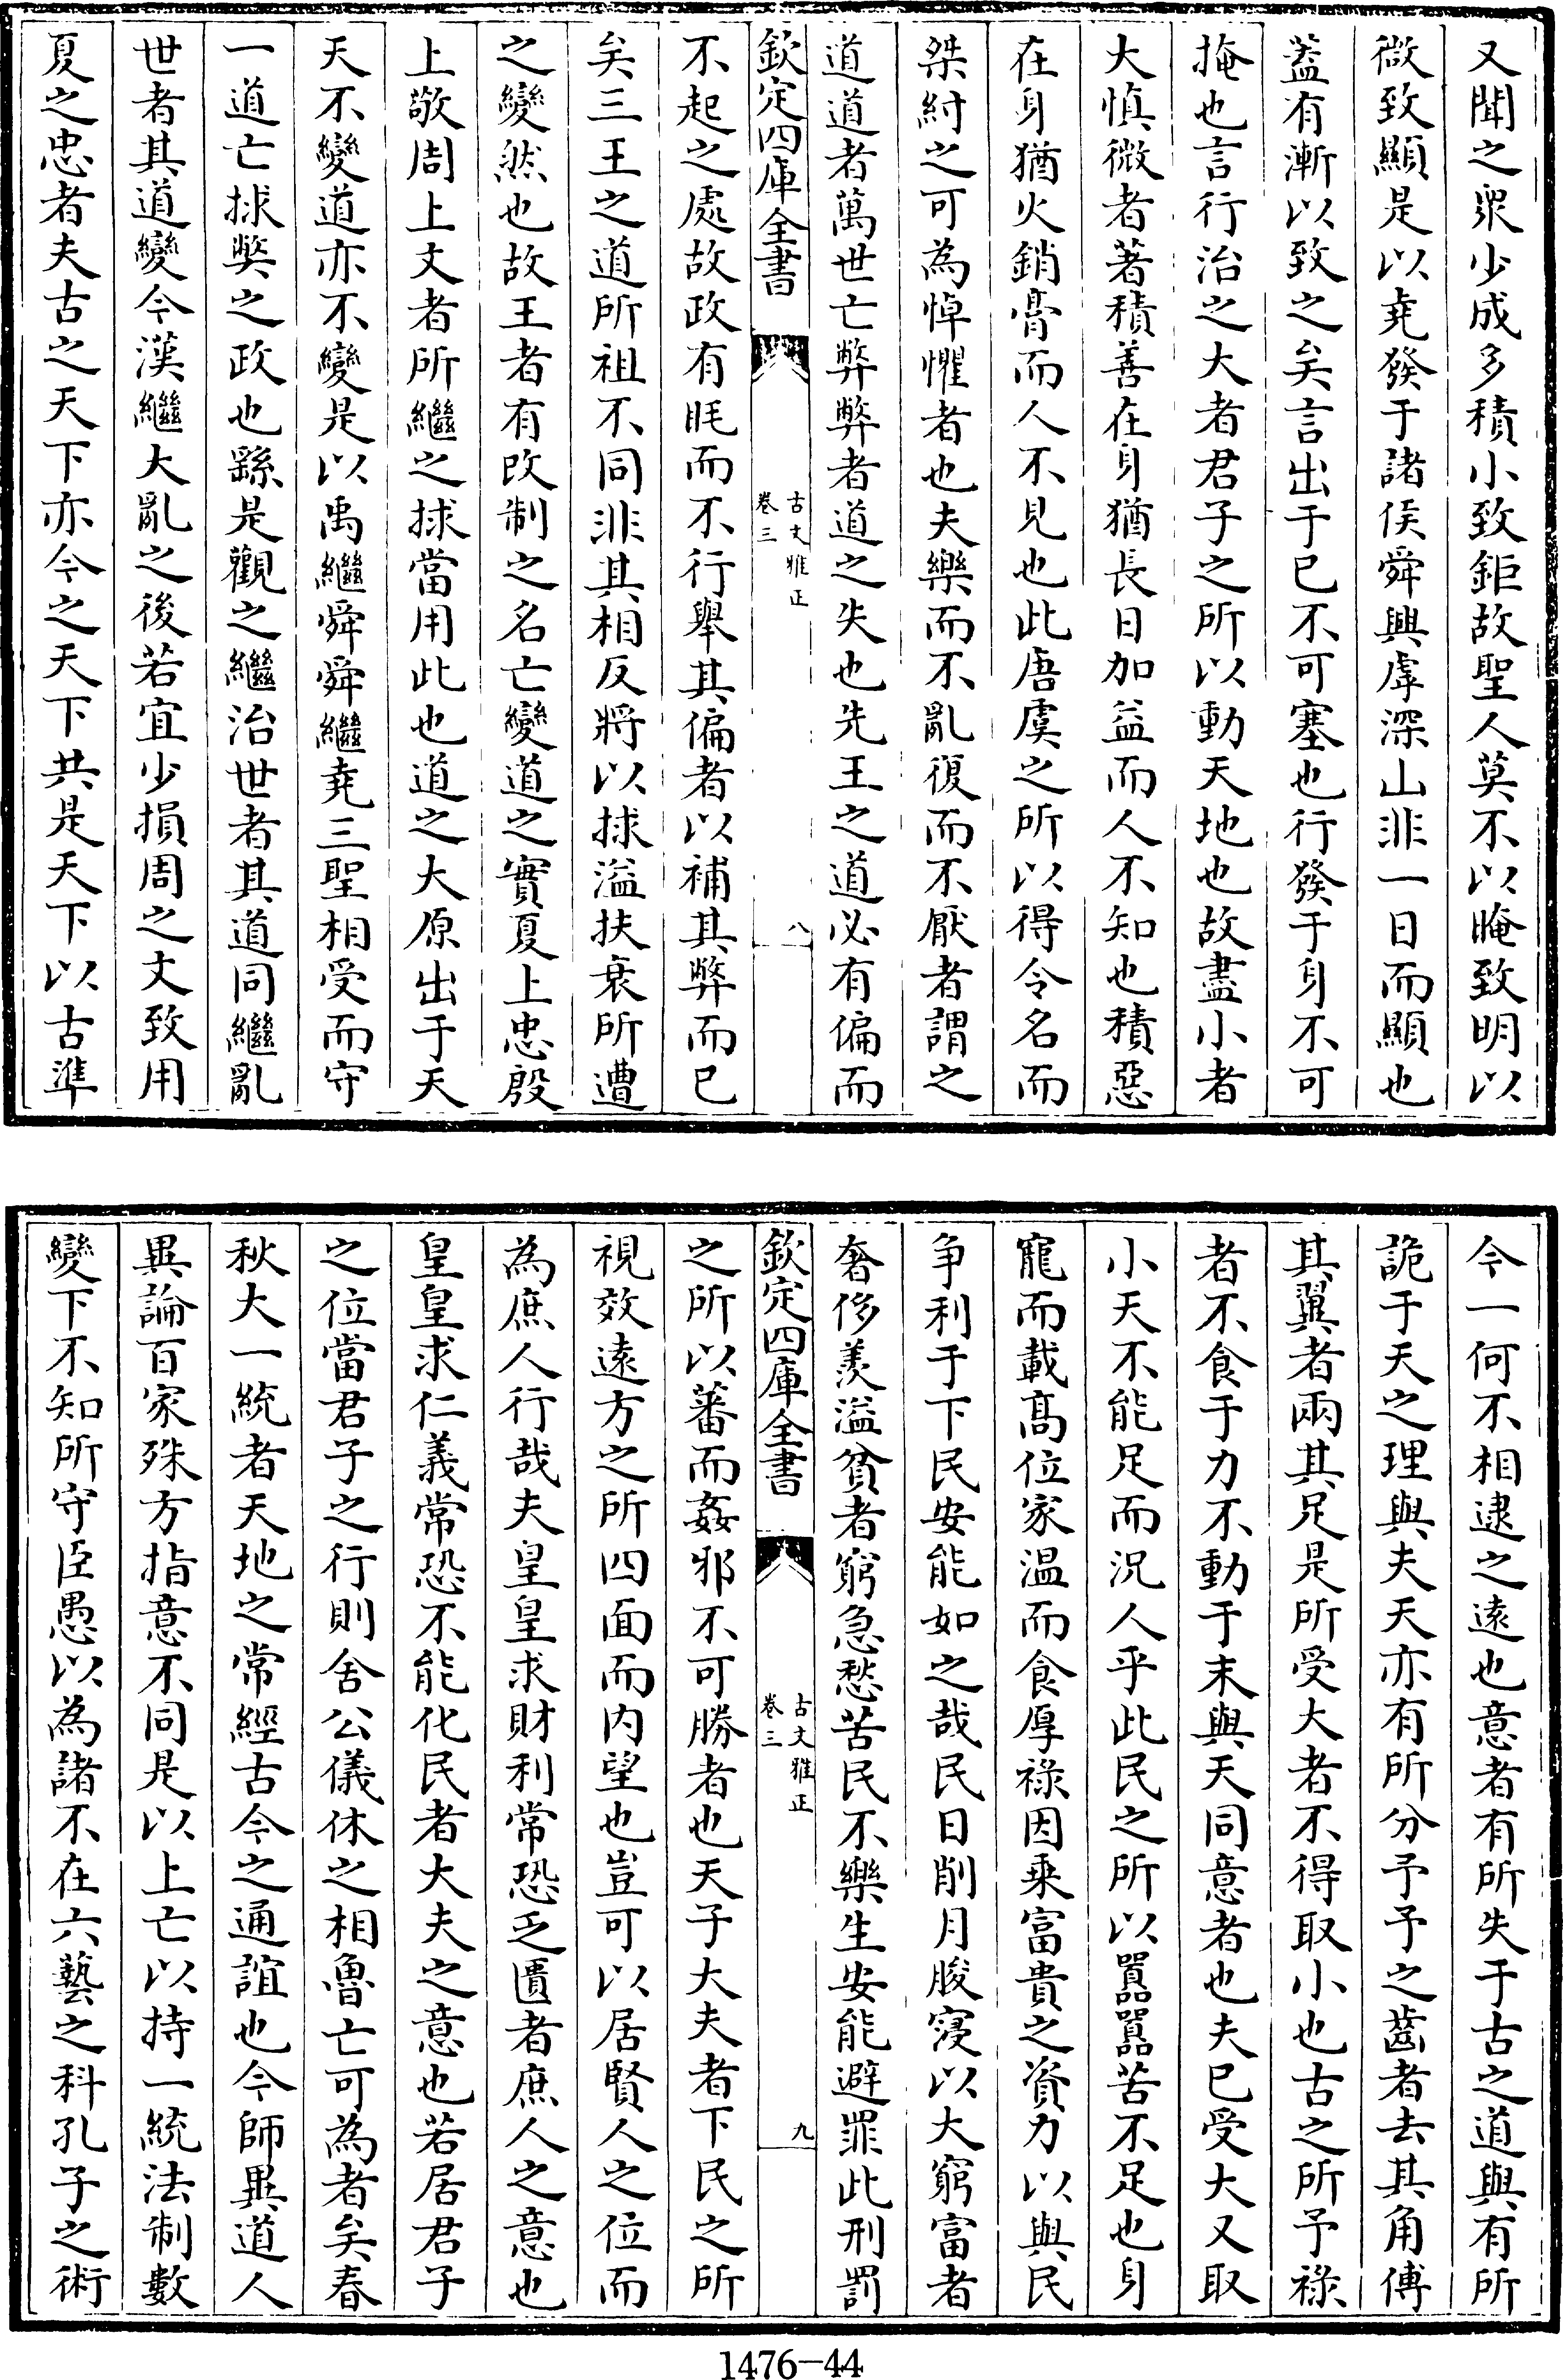 又聞之衆少成多積小致鉅故聖人莫不以晻致明以
微致顯是以堯發于諸侯舜興虖深山非一日而顯也
蓋有漸以致之矣言出于已不可塞也行發于身不可
掩也言行治之大者君子之所以動天地也故盡小者
大慎微者著積善在身猶長日加益而人不知也積惡
在身猶火銷膏而人不見也此唐虞之所以得令名而
桀紂之可為悼懼者也夫樂而不亂復而不厭者謂之
道道者萬世亡弊弊者道之失也先王之道必有偏而
欽定四庫全書
古文雅正
卷三
八
不起之處故政有眊而不行舉其偏者以補其弊而已
矣三王之道所祖不同非其相反將以捄溢扶衰所遭
之變然也故王者有改制之名亡變道之實夏上忠殷
上敬周上文者所繼之捄當用此也道之大原出于天
天不變道亦不變是以禹繼舜舜繼堯三聖相受而守
一道亡捄弊之政也繇是觀之繼治世者其道同繼亂
世者其道變今漢繼大亂之後若宜少損周之文致用
夏之忠者夫古之天下亦今之天下共是天下以古準
今一何不相逮之遠也意者有所失于古之道與有所
詭于天之理與夫天亦有所分予予之齒者去其角傅
其翼者兩其足是所受大者不得取小也古之所予祿
者不食于力不動于末與天同意者也夫已受大又取
小天不能足而況人乎此民之所以囂囂苦不足也身
寵而載髙位家温而食厚祿因乗富貴之資力以與民
争利于下民安能如之哉民日削月朘寖以大窮富者
奢侈羨溢貧者窮急愁苦民不樂生安能避罪此刑罰
欽定四庫全書
古文雅正
卷三
九
之所以蕃而姦邪不可勝者也天子大夫者下民之所
視效遠方之所四面而内望也豈可以居賢人之位而
為庶人行哉夫皇皇求財利常恐乏匱者庶人之意也
皇皇求仁義常恐不能化民者大夫之意也若居君子
之位當君子之行則舍公儀休之相魯亡可為者矣春
秋大一統者天地之常經古今之通誼也今師異道人
異論百家殊方指意不同是以上亡以持一統法制數
變下不知所守臣愚以為諸不在六藝之科孔子之術
1476-44